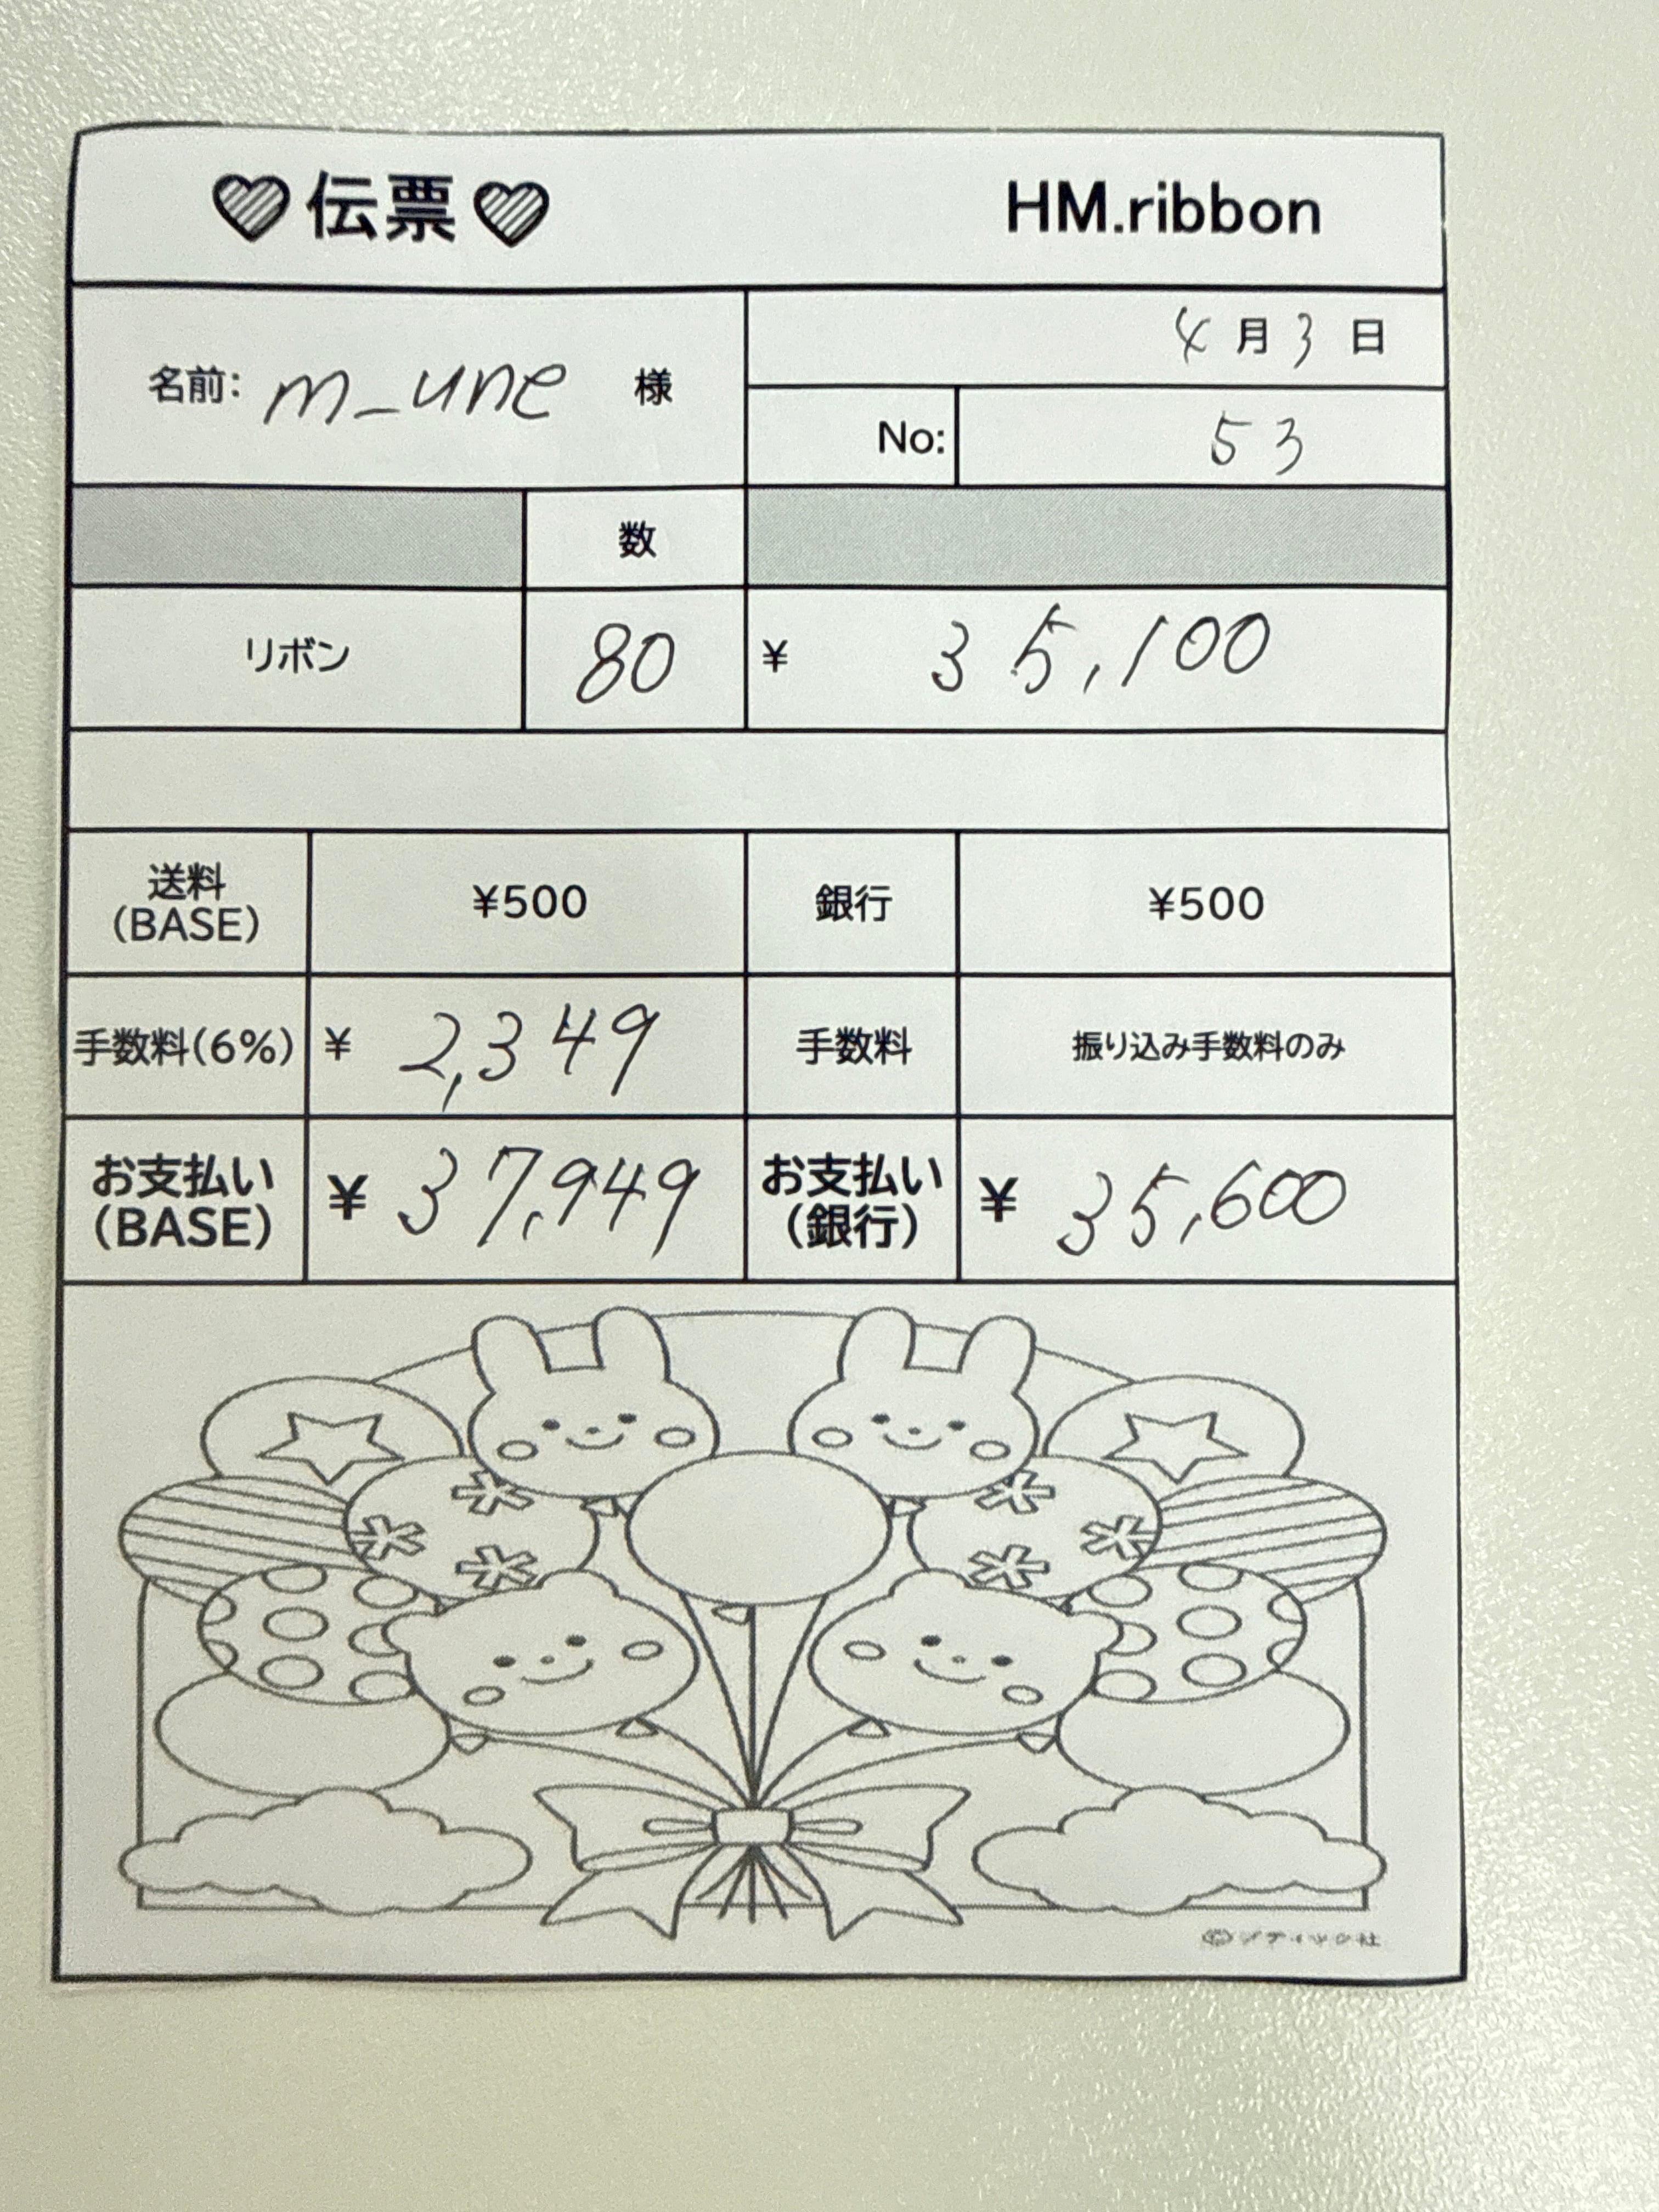 伝票 HM.ribbon
名前: m_une 様
4月3日
No: 53
数
リボン 80 ¥ 35,100
送料(BASE) ¥500 銀行 ¥500
手数料(6%) ¥ 2,349 手数料 振り込み手数料のみ
お支払い(BASE) ¥ 37,949 お支払い(銀行) ¥ 35,600